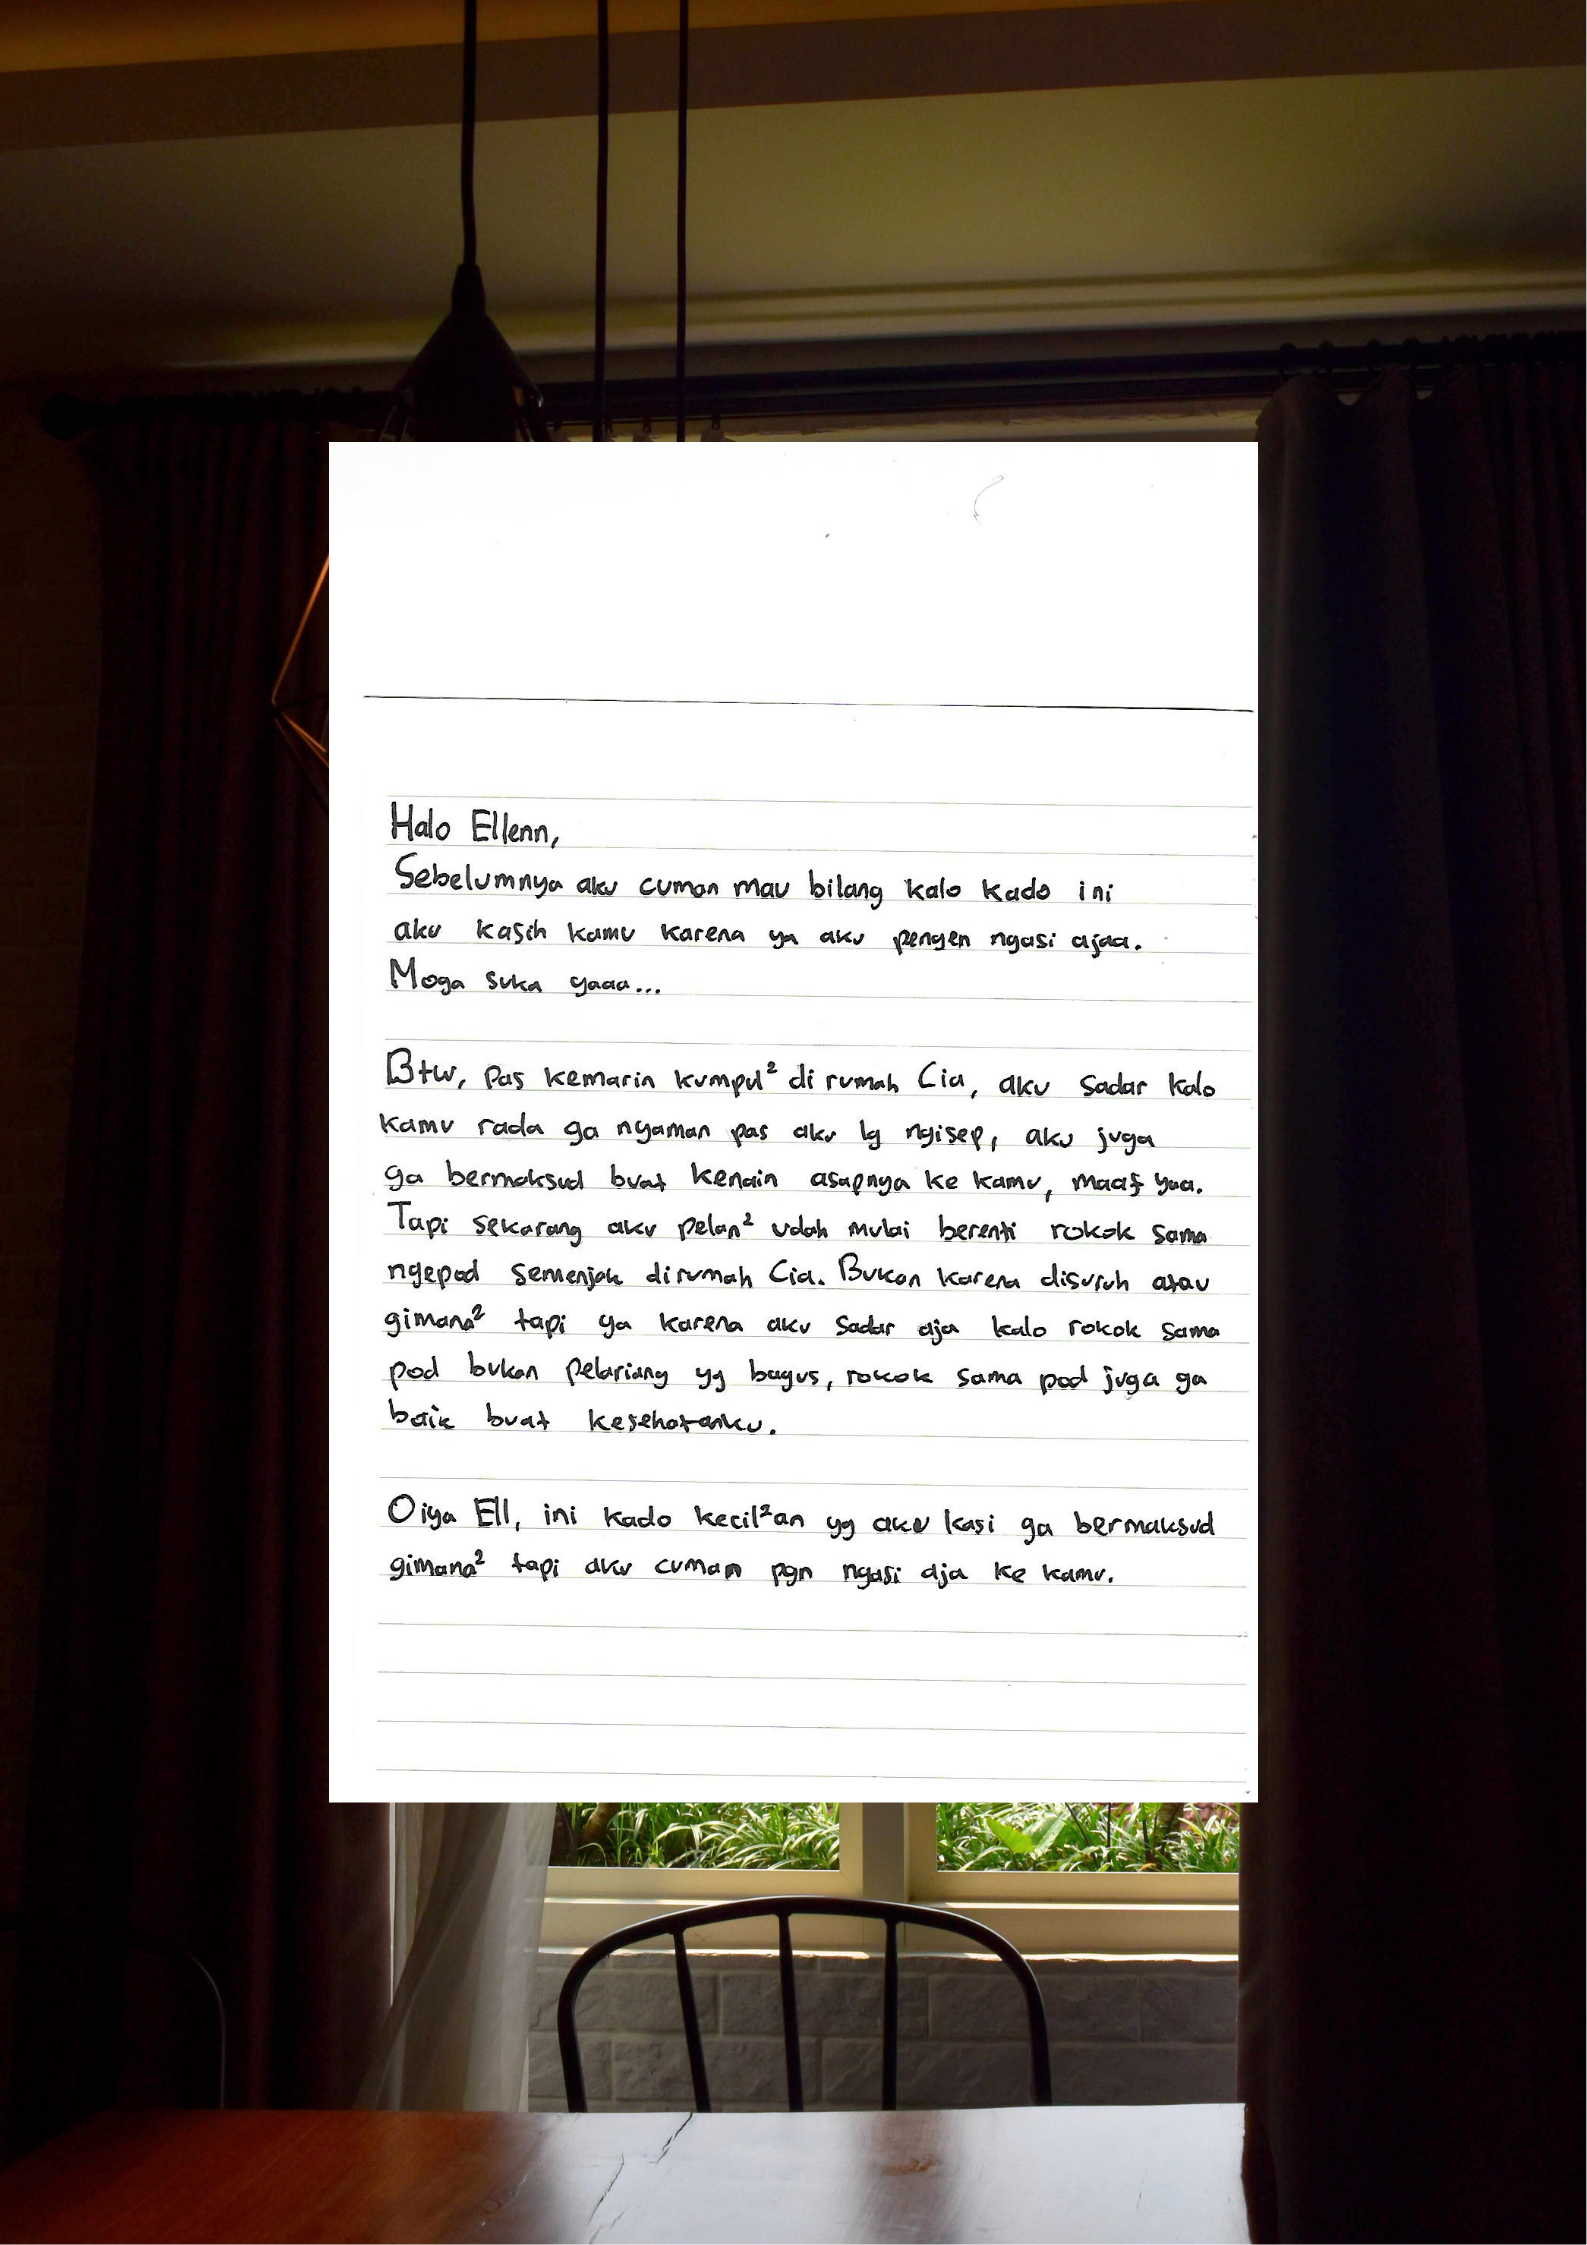 Halo Ellenn,
Sebelumnya aku cuman mau bilang kalo kado ini
aku kasih kamu karena ya aku pengen ngasi ajaa.
Moga suka yaaa...
Btw, pas kemarin kumpul² di rumah Cia, aku sadar kalo
kamu rada ga nyaman pas aku lg ngisep, aku juga
ga bermaksud buat kenain asapnya ke kamu, maaf yaa.
Tapi sekarang aku pelan² udah mulai berenti rokok sama
ngepod semenjak dirumah Cia. Bukan karena disuruh atau
gimana² tapi ya karena aku sadar aja kalo rokok sama
pod bukan pelariang yg bagus, rokok sama pod juga ga
baik buat kesehatanku.
Oiya Ell, ini kado kecil²an yg aku kasi ga bermaksud
gimana² tapi aku cuman pgn ngasi aja ke kamu.